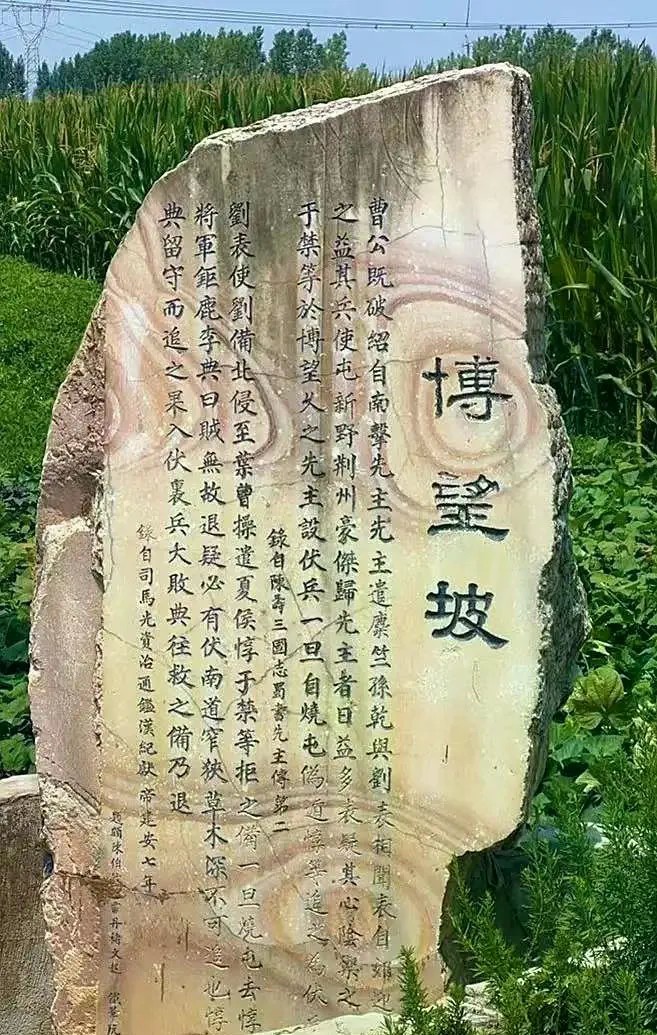 博望坡
曹公既破紹自南擊先主先主遣麋竺孫乾與劉表相聞表自郊迎
之益其兵使屯新野荆州豪傑歸先主者日益多表疑其心陰禦之
于禁等於博望久之先主設伏兵一旦自燒屯偽遁惇等追之為伏
錄自陳壽三國志蜀書先主傳第二
劉表使劉備北侵至葉曹操遣夏侯惇于禁等拒之備一旦燒屯去惇
將軍鉅鹿李典曰賊無故退疑必有伏南道窄狹草木深不可追也惇
典留守而追之果入伏裏兵大敗典往救之備乃退
錄自司馬光資治通鑑漢紀獻帝建安七年
題額陳伯